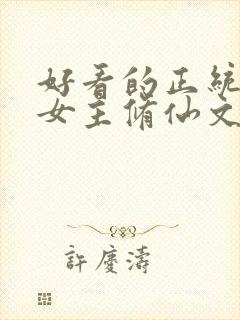 好看的正統
女主脩仙文
許慶濤